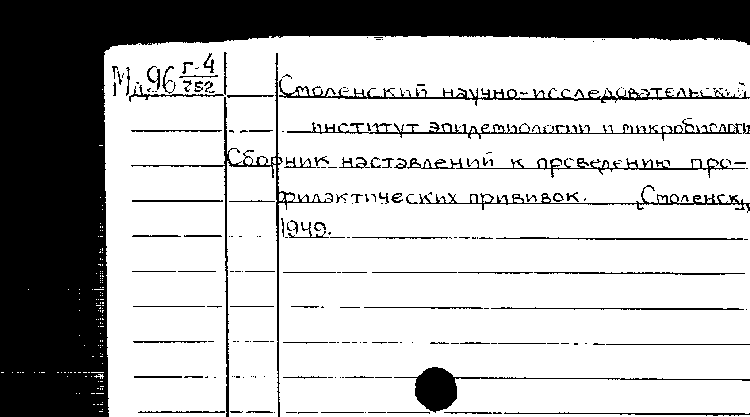 Мд96 Г-4/752
Смоленский научно-исследовательский
институт эпидемиологии и микробиологи
Сборник наставлений к проведению про-
филактических прививок. [Смоленск],
1949.